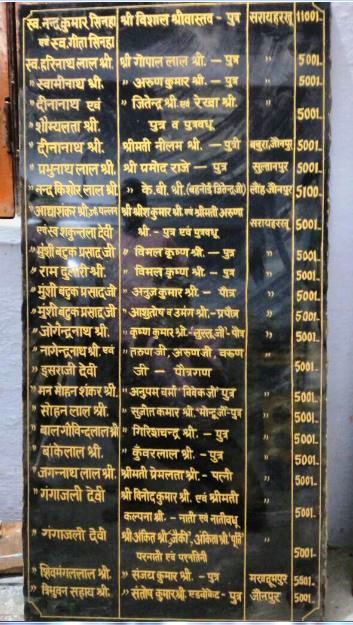 स्व. नन्द कुमार सिनहा श्री विशाल श्रीवास्तव - पुत्र सरायहरखू 11001.
एवं स्व. गीता सिनहा
स्व. हरिनाथ लाल श्री. श्री गोपाल लाल श्री. - पुत्र " 5001.
" स्वामीनाथ श्री. " अरुण कुमार श्री. - पुत्र " 5001.
" दीनानाथ एवं " जितेन्द्र श्री. एवं रेखा श्री. " 5001.
" शैम्यलता श्री. पुत्र व पुत्रवधू
" दीनानाथ श्री. श्रीमती नीलम श्री. - पुत्री बबुरा, जौनपुर 5001.
" प्रभुनाथ लाल श्री. श्री प्रमोद राजे - पुत्र सुल्तानपुर 5001.
" नन्द किशोर लाल श्री. " के. वी. श्री. (बहनोई जितेन्द्र जी) लौह जौनपुर 5100.
" आद्याशंकर श्री. श्री श्रीश कुमार श्री. एवं श्रीमती अरुणा सरायहरखू 5001.
एवं स्व शकुन्तला देवी श्री. - पुत्र एवं पुत्रवधू
" मुंशी बटुक प्रसाद जी " विमल कृष्ण श्री. - पुत्र " 5001.
" राम दुलारी श्री. " विमल कृष्ण श्री. - पुत्र " 5001.
" मुंशी बटुक प्रसाद जी " अनुज कुमार श्री. - पौत्र " 5001.
" मुंशी बटुक प्रसाद जी " आशुतोष व उमंग श्री. - प्रपौत्र " 5001.
" जोगेन्द्रनाथ श्री. " कृष्ण कुमार श्री. - पौत्र " 5001.
" नागेन्द्रनाथ श्री. एवं " तरुण जी, अरुण जी, वरुण " 5001.
" इसराजी देवी जी - पौत्रगण
" मन मोहन शंकर श्री. " अनुपम वर्मा "विवेक जी" पुत्र " 5001.
" सोहन लाल श्री. " सुजीत कुमार श्री. - पुत्र " 5001.
" बाल गोविन्द लाल श्री. " गिरिशचन्द्र श्री. - पुत्र " 5001.
" बांकेलाल श्री. " कुँवरलाल श्री. - पुत्र " 5001.
" जगन्नाथ लाल श्री. श्रीमती प्रेमलता श्री. - पत्नी " 5001.
" गंगाजली देवी श्री विनोद कुमार श्री. एवं श्रीमती " 5001.
कल्पना श्री. - नाती एवं नातीवधू
" गंगाजली देवी श्री अंकित श्री. " 5001.
परनाती एवं परनतिनी
" शिवमंगललाल श्री. " संजय कुमार श्री. - पुत्र मखदूमपुर 5501.
" त्रिभुवन सहाय श्री. " संतोष कुमार श्री. एडवोकेट - पुत्र जौनपुर 5001.